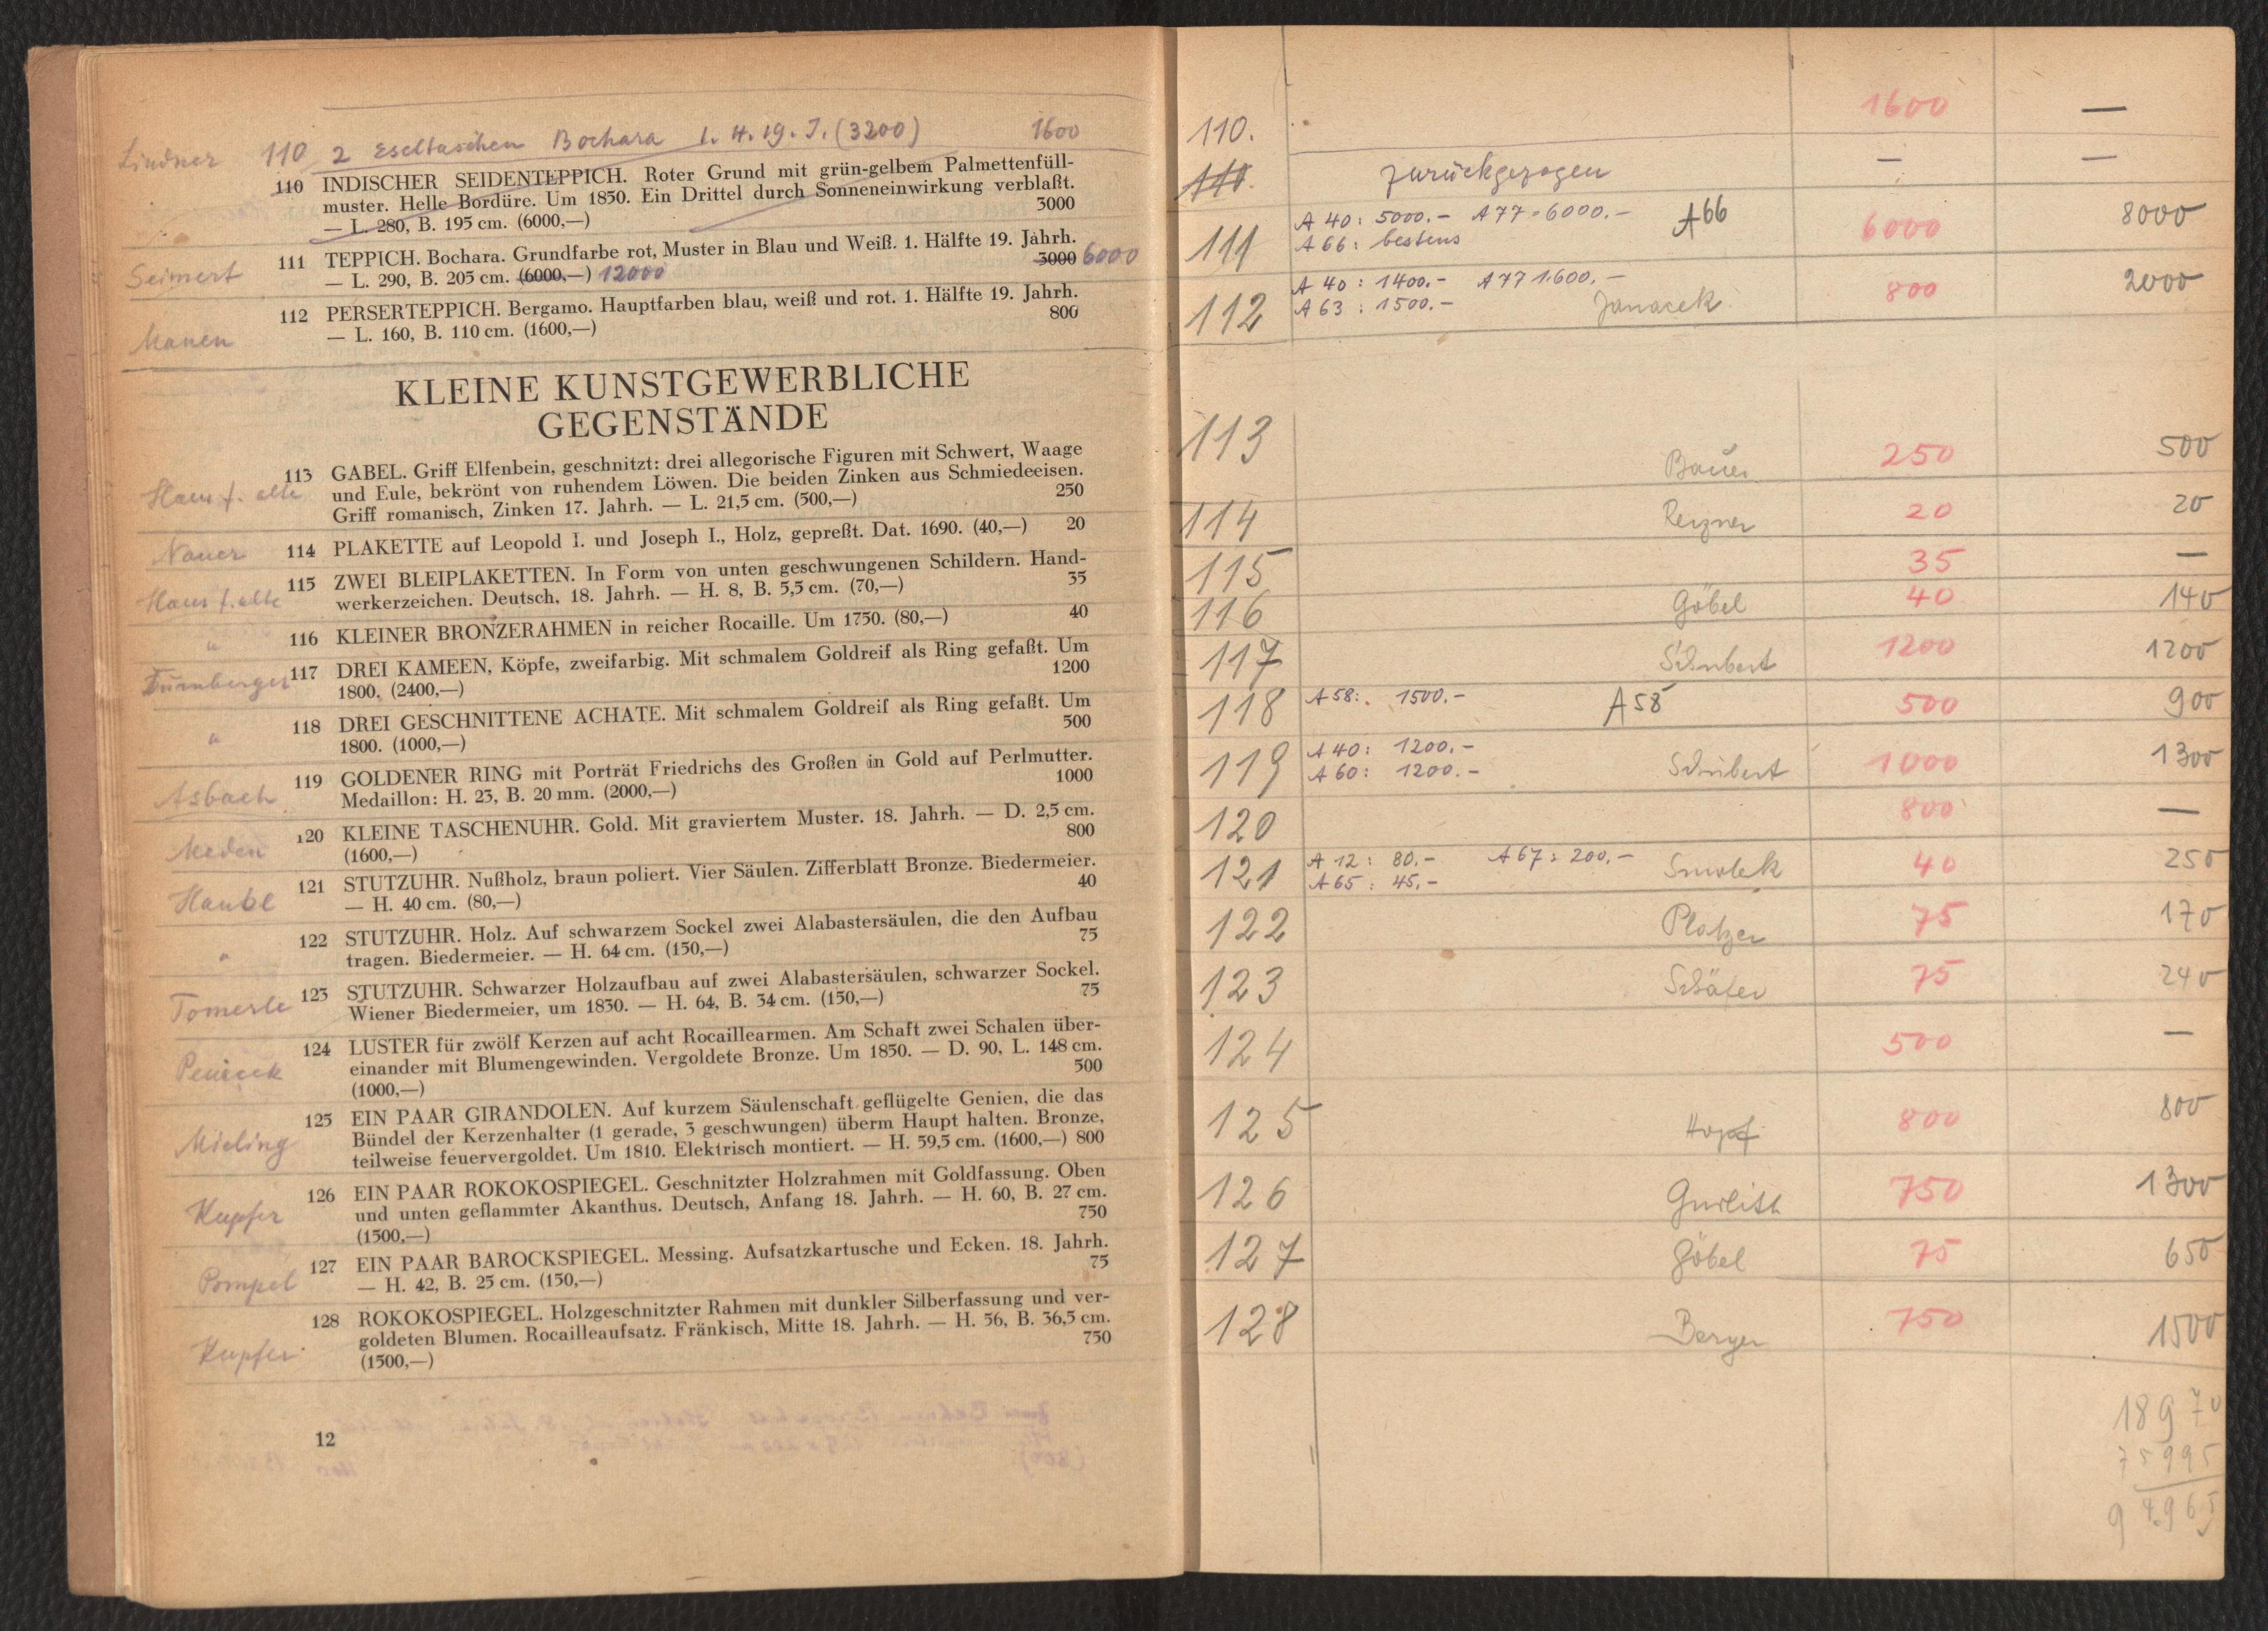 Lindner 110 2 Eseltaschen Bochara 1. H. 19. J. (3200) 1600
110 INDISCHER SEIDENTEPPICH. Roter Grund mit grün-gelbem Palmettenfüll-
muster. Helle Bordüre. Um 1850. Ein Drittel durch Sonneneinwirkung verblaßt.
— L. 280, B. 195 cm. (6000,—) 3000
Seimert 111 TEPPICH. Bochara. Grundfarbe rot, Muster in Blau und Weiß. 1. Hälfte 19. Jahrh.
— L. 290, B. 205 cm. (6000,—) 12000 3000 6000
Manen 112 PERSERTEPPICH. Bergamo. Hauptfarben blau, weiß und rot. 1. Hälfte 19. Jahrh.
— L. 160, B. 110 cm. (1600,—) 800
KLEINE KUNSTGEWERBLICHE
GEGENSTÄNDE
Haus f. alte 113 GABEL. Griff Elfenbein, geschnitzt: drei allegorische Figuren mit Schwert, Waage
und Eule, bekrönt von ruhendem Löwen. Die beiden Zinken aus Schmiedeeisen.
Griff romanisch, Zinken 17. Jahrh. — L. 21,5 cm. (500,—) 250
Nauer 114 PLAKETTE auf Leopold I. und Joseph I., Holz, gepreßt. Dat. 1690. (40,—) 20
Haus f. alte 115 ZWEI BLEIPLAKETTEN. In Form von unten geschwungenen Schildern. Hand-
werkerzeichen. Deutsch, 18. Jahrh. — H. 8, B. 5,5 cm. (70,—) 35
" 116 KLEINER BRONZERAHMEN in reicher Rocaille. Um 1750. (80,—) 40
Türnberger 117 DREI KAMEEN, Köpfe, zweifarbig. Mit schmalem Goldreif als Ring gefaßt. Um
1800. (2400,—) 1200
" 118 DREI GESCHNITTENE ACHATE. Mit schmalem Goldreif als Ring gefaßt. Um
1800. (1000,—) 500
Asbach 119 GOLDENER RING mit Porträt Friedrichs des Großen in Gold auf Perlmutter.
Medaillon: H. 23, B. 20 mm. (2000,—) 1000
Meden 120 KLEINE TASCHENUHR. Gold. Mit graviertem Muster. 18. Jahrh. — D. 2,5 cm.
(1600,—) 800
Haubl 121 STUTZUHR. Nußholz, braun poliert. Vier Säulen. Zifferblatt Bronze. Biedermeier.
— H. 40 cm. (80,—) 40
" 122 STUTZUHR. Holz. Auf schwarzem Sockel zwei Alabastersäulen, die den Aufbau
tragen. Biedermeier. — H. 64 cm. (150,—) 75
Tomerle 123 STUTZUHR. Schwarzer Holzaufbau auf zwei Alabastersäulen, schwarzer Sockel.
Wiener Biedermeier, um 1830. — H. 64, B. 34 cm. (150,—) 75
124 LUSTER für zwölf Kerzen auf acht Rocaillearmen. Am Schaft zwei Schalen über-
einander mit Blumengewinden. Vergoldete Bronze. Um 1850. — D. 90, L. 148 cm.
(1000,—) 500
Mieling 125 EIN PAAR GIRANDOLEN. Auf kurzem Säulenschaft geflügelte Genien, die das
Bündel der Kerzenhalter (1 gerade, 3 geschwungen) überm Haupt halten. Bronze,
teilweise feuervergoldet. Um 1810. Elektrisch montiert. — H. 59,5 cm. (1600,—) 800
Kupfer 126 EIN PAAR ROKOKOSPIEGEL. Geschnitzter Holzrahmen mit Goldfassung. Oben
und unten geflammter Akanthus. Deutsch, Anfang 18. Jahrh. — H. 60, B. 27 cm.
(1500,—) 750
Pompel 127 EIN PAAR BAROCKSPIEGEL. Messing. Aufsatzkartusche und Ecken. 18. Jahrh.
— H. 42, B. 25 cm. (150,—) 75
Kupfer 128 ROKOKOSPIEGEL. Holzgeschnitzter Rahmen mit dunkler Silberfassung und ver-
goldeten Blumen. Rocailleaufsatz. Fränkisch, Mitte 18. Jahrh. — H. 56, B. 36,5 cm.
(1500,—) 750
12
110. 1600 —
110. zurückgezogen — —
111 A 40: 5000.- A 77 = 6000.- A66 6000 8000
A 66: bestens
112 A 40: 1400.- A 77 1.600.- 800 2000
A 63: 1500.- Janacek
113 Bauer 250 500
114 20 20
115 35 —
116 Göbel 40 140
117 Schubert 1200 1200
118 A 58: 1500.- A 58 500 900
119 A 40: 1200.- 1000 1300
A 60: 1200.- Schubert
120 800 —
121 A 12: 80.- A 67: 200.- Smolek 40 250
A 65: 45.-
122 Platzer 75 170
123 Schäfer 75 240
124 500 —
125 Hopf 800 800
126 Gurlitt 750 1300
127 Göbel 75 650
128 Berger 750 1500
18970
75995
94965